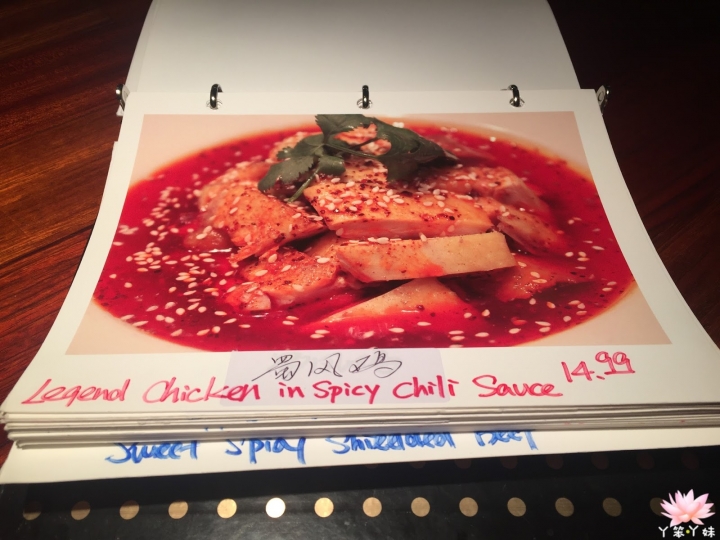 蜀风鸡
Legend Chicken in Spicy Chili Sauce 14.99
Sweet Spicy Shredded Beef
丫笨丫妹